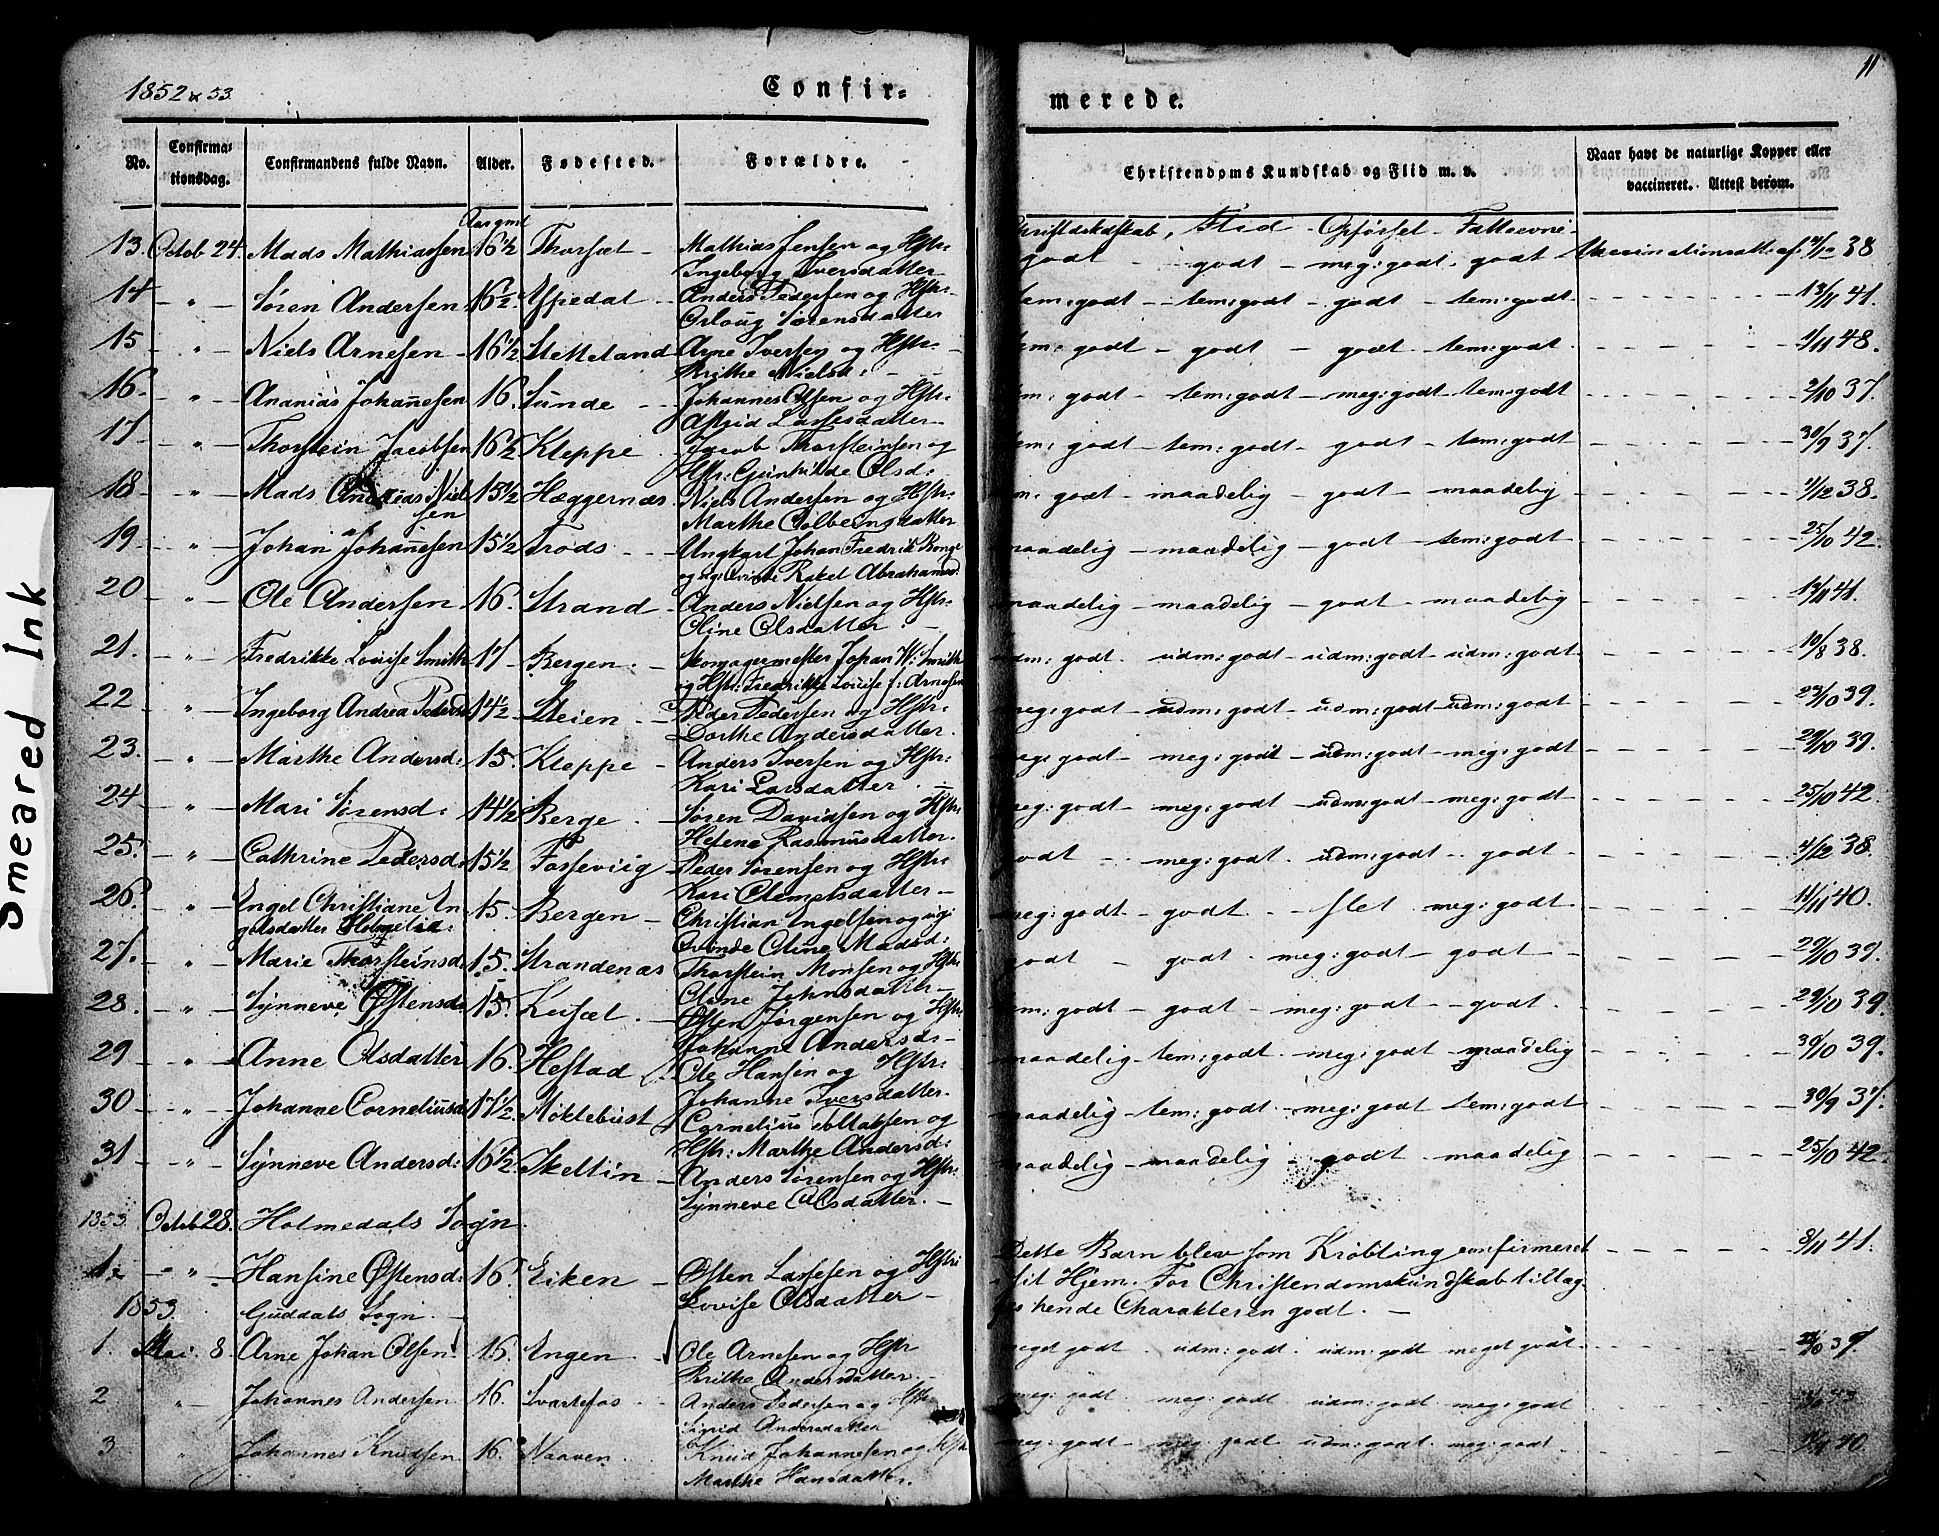 1852 & 53.
Confir=
merede.
11
No.
Confirma=
tionsdag.
Confirmandens fulde Navn.
Alder.
Fødested.
Forældre.
Christendoms Kundskab og Flid m. v.
Naar havt de naturlige Kopper eller
vaccineret. Attest derom.
Smeared Ink
Aar gmd
Christdskdskab, Flid - Opførsel - Fatteevne
13. Octob 24. Mads Mathiassen 16½ Thorsæt Mathias Jensen og Hstr: godt - godt - meg: godt. godt Vaccinationsatt. af 38
Ingeborg Iversdatter
14 " Søren Andersen 16½ Espedal Anders Pedersen og Hstr: tem: godt - tem: godt - godt - tem: godt 13/11 41.
Orloug Sørensdatter
15 " Niels Arnesen 16½ Stetteland Arne Iversen og Hstr: tem: godt - godt - godt - tem: godt 1/11 48.
Brithe Nielsd:
16. " Ananias Johannesen 16. Sunde Johannes Olsen og Hstr: tem: godt - tem: godt - meg: godt tem: godt 2/10 37.
Astrid Lassesdatter
17 " Thorstein Jacobsen 16½ Kleppe Jacob Thorsteinsen og tem: godt - tem: godt - godt - tem: godt 30/9 37.
Hstr: Gunhilde Olsd:
18 " Mads Andreas Niel 15½ Hæggernæs Niels Andersen og Hstr: tem: godt - maadelig - godt - maadelig 4/12 38.
sen Marthe Colbeinsdatter
19 " Johan Johannesen 15½ Trods Ungkarl Johan Fredrik maadelig - maadelig - godt - tem: godt 25/10 42.
og Rakel Abrahamsd:
20 " Ole Andersen 16. Strand Anders Nielsen og Hstr: maadelig - maadelig - godt - maadelig 14/11 41.
Oline Olsdatter
21. " Fredrikke Louise Smith 17 Bergen Skomagermester Johan W: Smith udm: godt. udm: godt - udm: godt udm: godt 10/8 38.
og Hstr: Fredrikke Louise f: Arnesen
22 " Ingeborg Andrea Pedersd 14½ Steien Peder Pedersen og Hstr: meg: godt - udm: godt - udm: godt udm: godt 23/10 39.
Dorthe Andersdatter.
23. " Marthe Andersd: 15. Kleppe Anders Iversen og Hstr: meg: godt - meg: godt - udm: godt - meg: godt 29/10 39.
Kari Larsdatter
24 " Mari Sørensd: 14½ Berge Søren Davidsen og Hstr meg: godt - meg: godt - udm: godt - meg: godt 25/10 42.
Helene Rasmusdatter
25. " Cathrine Pedersd. 15½ Fossevig Peder Sørensen og Hstr: godt - meg: godt. udm: godt - godt 4/12 38.
Kari Clemetsdatter
26. " Engel Christiane En 15. Bergen Christian Ingelsen og meg: godt - godt - slet meg: godt 11/11 40.
gelsdatter Oline Madsd:
27. " Marie Thorsteinsd. 15. Strandenæs Thorstein Monsen og Hstr godt - godt. meg: godt - godt 29/10 39.
Oline Johnsdatter
28. " Synneve Østensd: 15. Østen Jørgensen og Hstr tem: godt - godt - meg: godt - godt. 29/10 39.
Johanne Andersd:
29 " Anne Olsdatter 16. Hestad Ole Hansen og Hstr: maadelig - tem: godt. meg: godt - maadelig 30/10 39.
Johanne Iversdatter
30 " Johanne Corneliusd: 17½ Møklebust Cornelius Tollaksen og maadelig - tem: godt - meg: godt tem: godt 30/9 37.
Hstr: Marthe Andersd:
31 " Synneve Andersd: 16½ Skeltin Anders Sørensen og Hstr: maadelig - maadelig - godt - maadelig 25/10 42.
Synneve Olsdatter
1853. Octob 28. Holmedals Sogn
1. " Hansine Østensd: 16. Eiken Østen Lassesen og Hstr: Dette Barn blev som Krøbling confirmeret 8/11 41.
Lovise Olsdatter sit Hjem. For Christendomskundskab tillag
1853. Guddals Sogn. hende Charakteren godt.
1 Mai. 8. Arne Johan Olsen 15. Engen Ole Arnesen og Hstr meget godt. udm: godt. udm: godt meget godt 39.
Brithe Andersdatter
2. " Johannes Andersen 16. Svartefos Anders Pedersen og Hstr meg: godt. meg: godt udm: godt meg: godt 43.
Sigrid Andersdatter
3 " Johannes Knudsen 16. Naaven Knud Johannesen og Hstr meg: godt - meg: godt udm: godt. meg: godt. 40.
Marthe Hansdatter.